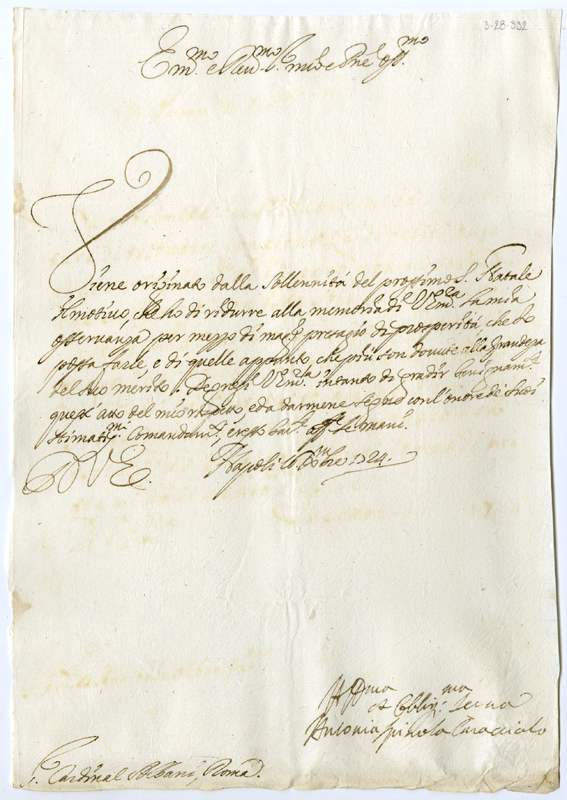 3-28-332
Em.mo e Reu.mo S.r mio e Pne Oss.mo
Viene originato dalla Sollennità del prossimo S. Natale
il motiuo, che ho di ridurre alla memoria di V. Em.za la mia
osseruanza per mezzo di presagio di prosperità, che Le
possa farle, e di quelle appunto che più son douute alla Grandezza
del suo merito. Degnisi V. Em.za intanto di gradir benignam.te
quest' atto del mio e da darmene segno con l'onore di Suoi
stimatis.mi Comandam.ti, e resto bac.le Mani.
Napoli Xbre 1724.
D V E.
et Obblig.ma Serua
Antonia Spinola Caracciolo
S. Cardinal Albani, Roma.